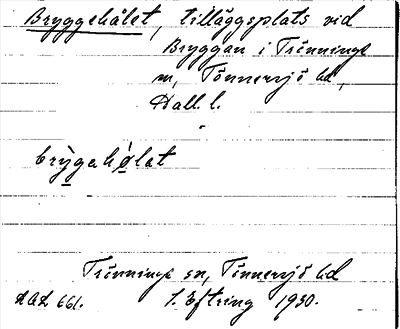 Bryggehålet, tilläggsplats vid
Bryggan i Trönninge
sn, Tönnersjö hd,
Hall. l.
brỳgehø̀lət
Trönninge sn, Tönnersjö hd
LAL 661. J. Eftring 1930.